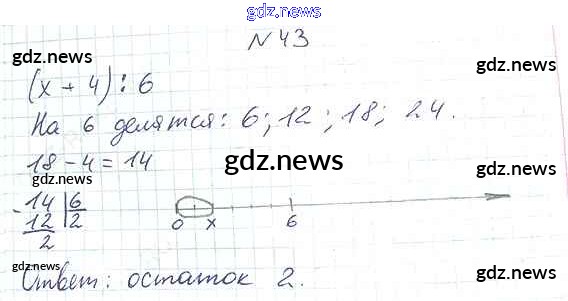 gdz.news
N 43
gdz.news gdz.news
(x + 4) : 6
gdz.news
На 6 делятся: 6; 12; 18; 24.
18 - 4 = 14
gdz.news
gdz.news gdz.news
- 14 | 6
12 | 2
2
0 x 6
gdz.news gdz.news
gdz.news
Ответ: остаток 2.